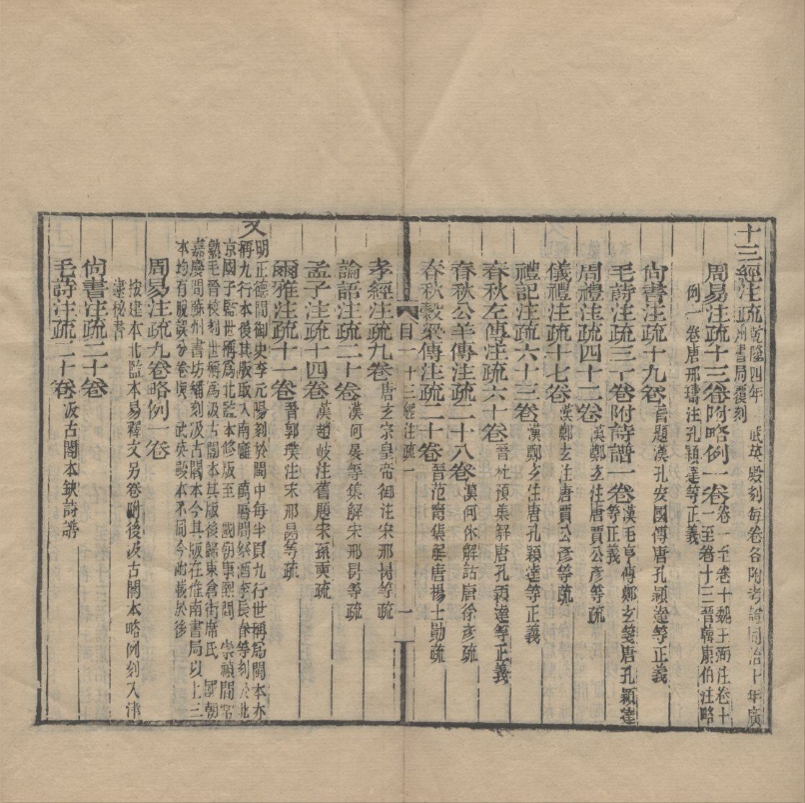 十三經注疏乾隆四年武英殿刻每卷各附考證同治十年廣州書局覆刻
周易注疏十三卷附略例一卷卷一至卷十魏王弼注卷十一至卷十三晉韓康伯注略例一卷唐邢璹注孔穎達等正義
尙書注疏十九卷舊題漢孔安國傳唐孔穎達等正義
毛詩注疏三十卷附詩譜一卷漢毛亨傳鄭玄箋唐孔穎達等正義
周禮注疏四十二卷漢鄭玄注唐賈公彥等疏
儀禮注疏十七卷漢鄭玄注唐賈公彥等疏
禮記注疏六十三卷漢鄭玄注唐孔穎達等正義
春秋左傳注疏六十卷晉杜預集解唐孔穎達等正義
春秋公羊傳注疏二十八卷漢何休解詁唐徐彥疏
春秋穀梁傳注疏二十卷晉范甯集解唐楊士勛疏
目 十三經注疏 一
孝經注疏九卷唐玄宗皇帝御注宋邢昺等疏
論語注疏二十卷漢何晏等集解宋邢昺等疏
孟子注疏十四卷漢趙岐注舊題宋孫奭疏
爾雅注疏十一卷晉郭璞注宋邢昺等疏
又明正德間御史李元陽刻於閩中每半頁九行世稱爲閩本亦稱九行本後其版取入南雍 萬曆間祭酒李長春等刻於北京國子監世稱爲北監本修版至 國朝事熙間 崇禎間常熟毛晉校刻世稱爲汲古閣本其版後歸東倉街席氏 國朝嘉慶間蘇州書坊翻刻汲古閣本今其版在淮南書局以上三本均有脫誤分卷與 武英殿本不同今附載於後
周易注疏九卷略例一卷
按建本北監本易釋文另卷附後汲古閣本略例刻入津逮秘書
尙書注疏二十卷
毛詩注疏二十卷汲古閣本缺詩譜